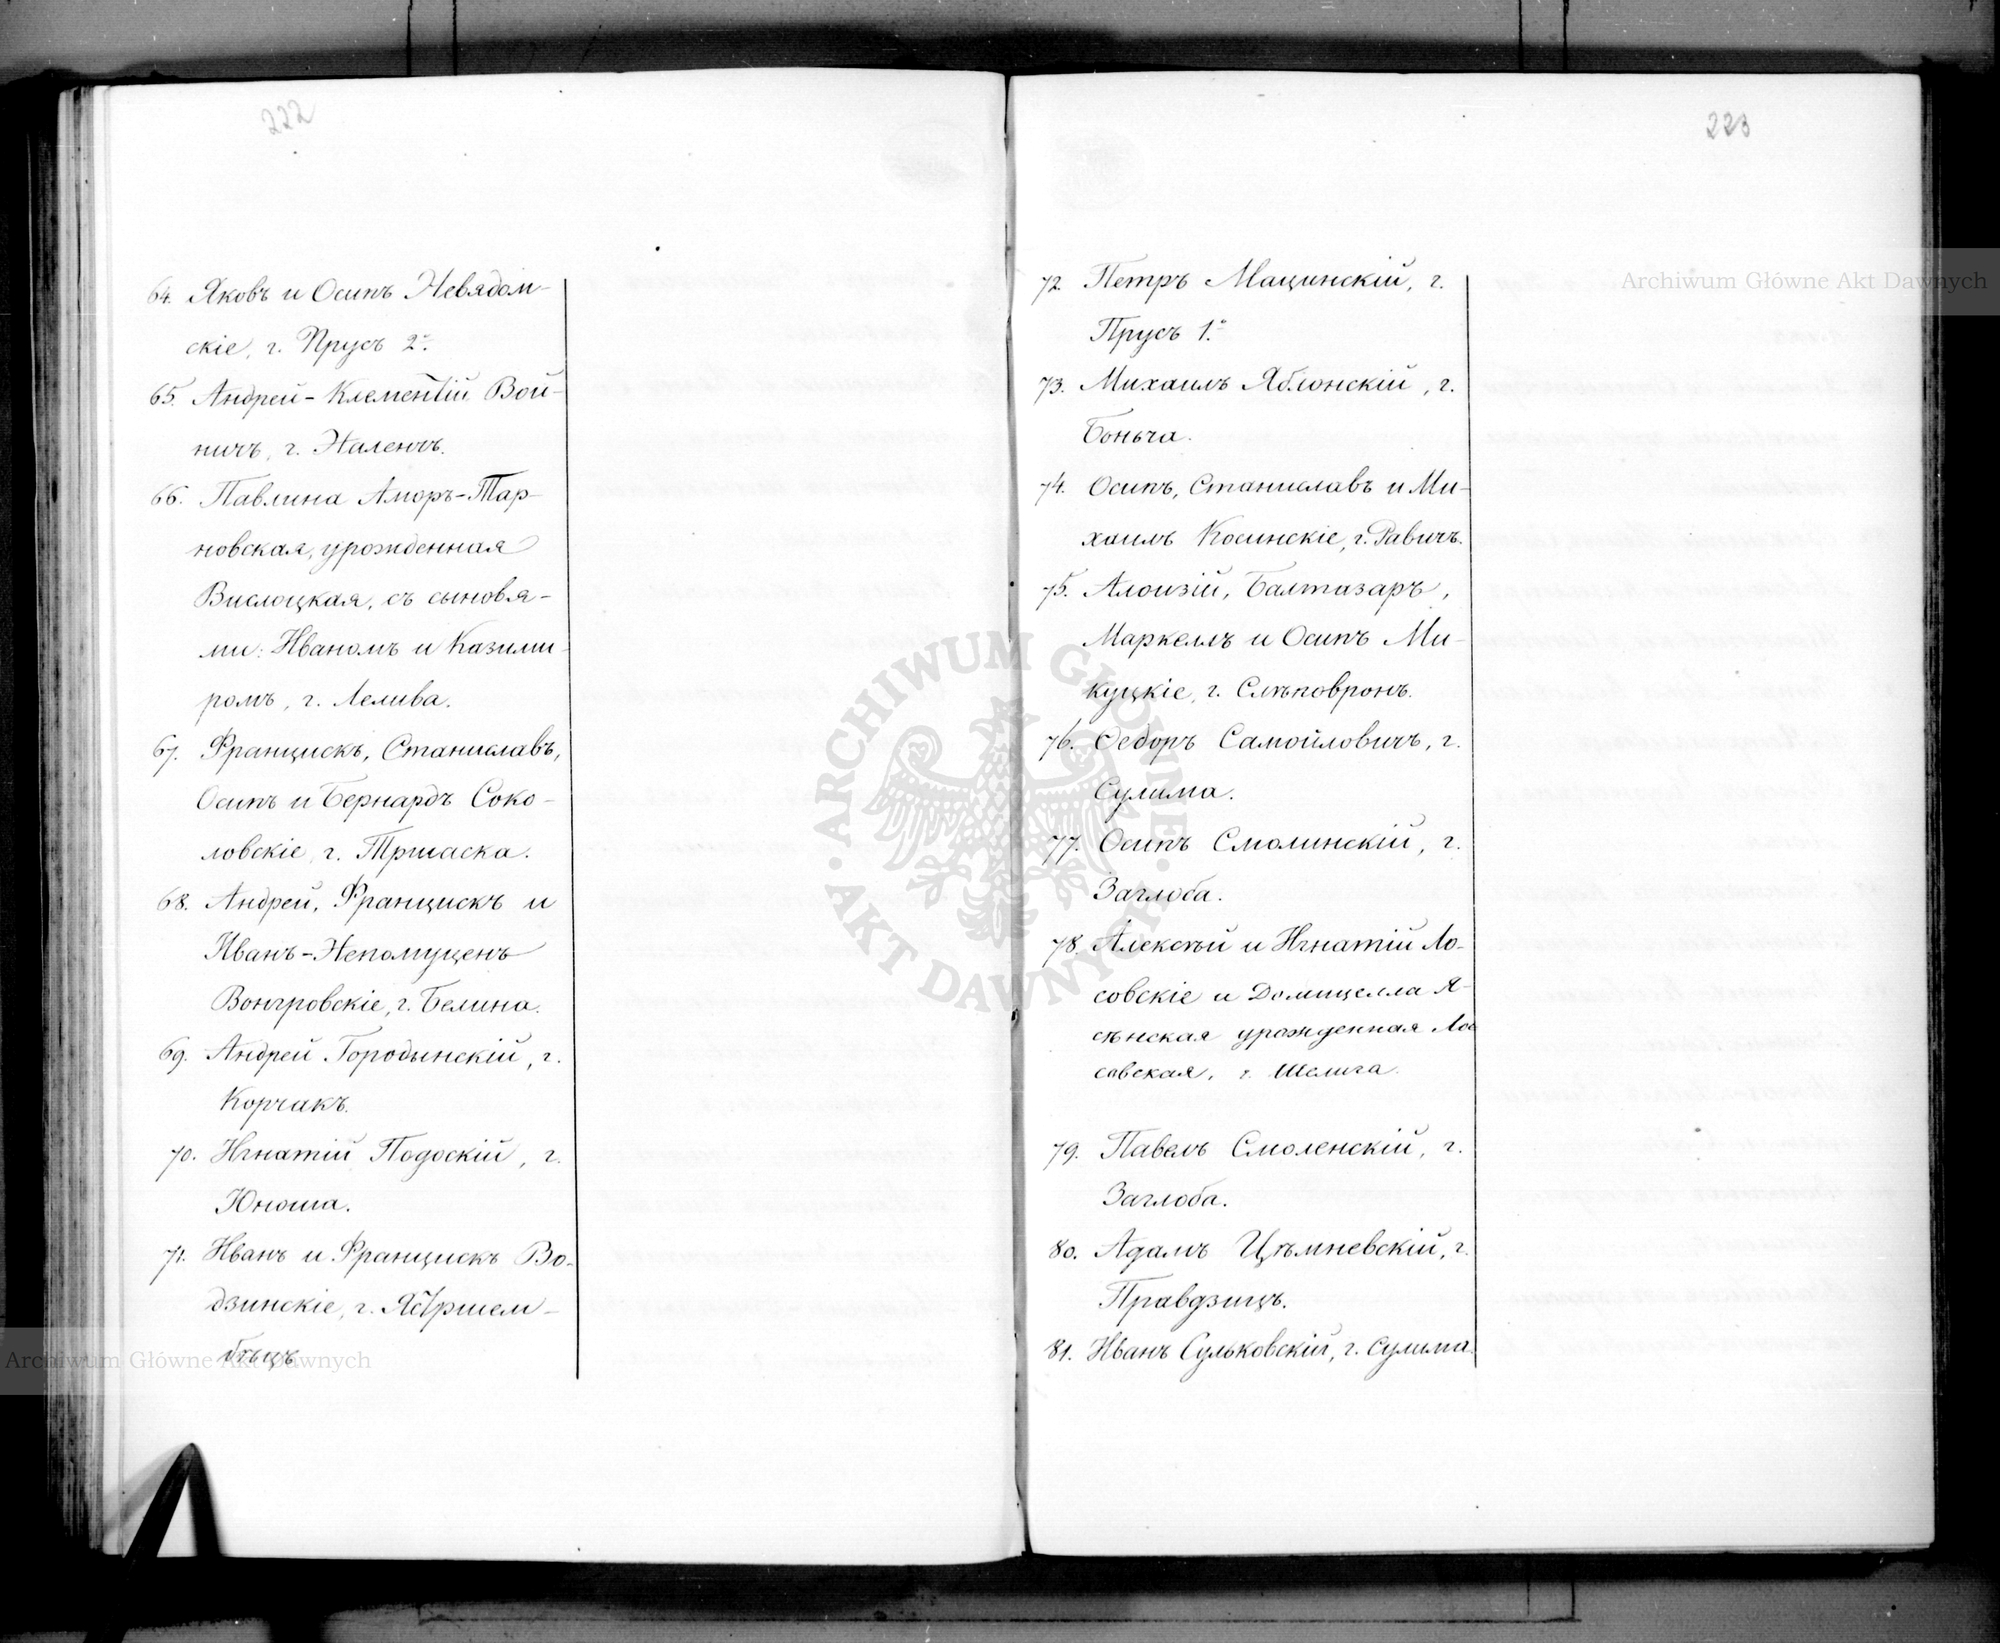 222
64. Яковъ и Осипъ Невядом-
скіе, г. Прусъ 2º.
65. Андрей-Клементій Вой-
ничъ, г. Наленчъ.
66. Павлина Аморъ-Тар-
новская, урожденная
Вислоцкая, съ сыновья-
ми: Иваномъ и Казими-
ромъ, г. Лелива.
67. Францискъ, Станиславъ,
Осипъ и Бернардъ Соко-
ловскіе, г. Тршаска.
68. Андрей, Францискъ и
Иванъ-Непомуценъ
Вонгровскіе, г. Белина.
69. Андрей Городынскій, г.
Корчакъ.
70. Игнатій Подоскій, г.
Юноша.
71. Иванъ и Францискъ Во-
дзинскіе, г. Ястршем-
бѣцъ
223
72. Петръ Мацинскій, г.
Прусъ 1º.
73. Михаилъ Яблонскій, г.
Боньча.
74. Осипъ, Станиславъ и Ми-
хаилъ Косинскіе, г. Равичъ.
75. Алоизій, Балтазаръ,
Маркеллъ и Осипъ Ми-
куцкіе, г. Слѣповронъ.
76. Ѳедоръ Самойловичъ, г.
Сулима.
77. Осипъ Смолинскій, г.
Заглоба.
78. Алексѣй и Игнатій Ло-
совскіе и Домицелла Я-
сѣнская урожденная Ло-
совская, г. Шелига.
79. Павелъ Смоленскій, г.
Заглоба.
80. Адамъ Цѣмневскій, г.
Правдзицъ.
81. Иванъ Сульковскій, г. Сулима.
Archiwum Główne Akt Dawnych
Archiwum Główne Akt Dawnych
ARCHIWUM GŁÓWNE · AKT DAWNYCH ·